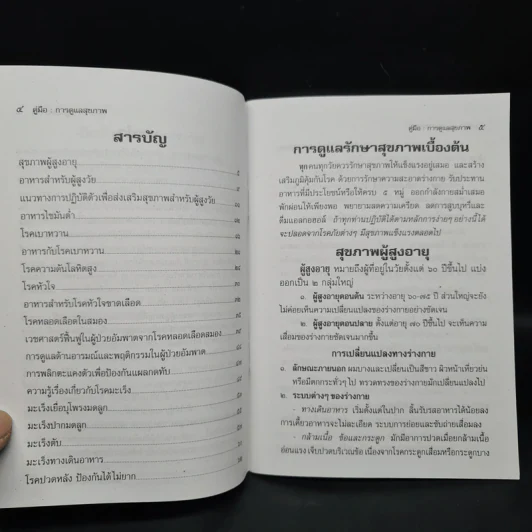 ๔ คู่มือ : การดูแลสุขภาพ
สารบัญ
สุขภาพผู้สูงอายุ
อาหารสำหรับผู้สูงวัย
แนวทางการปฏิบัติตัวเพื่อส่งเสริมสุขภาพสำหรับผู้สูงวัย
อาหารไขมันต่ำ
โรคเบาหวาน
อาหารกับโรคเบาหวาน
โรคความดันโลหิตสูง
โรคหัวใจ
อาหารสำหรับโรคหัวใจขาดเลือด
โรคหลอดเลือดในสมอง
เวชศาสตร์ฟื้นฟูในผู้ป่วยอัมพาตจากโรคหลอดเลือดสมอง
การดูแลด้านอารมณ์และพฤติกรรมในผู้ป่วยอัมพาต
การพลิกตะแคงตัวเพื่อป้องกันแผลกดทับ
ความรู้เรื่องเกี่ยวกับโรคมะเร็ง
มะเร็งเยื่อบุโพรงมดลูก
มะเร็งปากมดลูก
มะเร็งตับ
มะเร็งทางเดินอาหาร
โรคปวดหลัง ป้องกันได้ไม่ยาก
คู่มือ : การดูแลสุขภาพ ๕
การดูแลรักษาสุขภาพเบื้องต้น
ทุกคนทุกวัยควรรักษาสุขภาพให้แข็งแรงอยู่เสมอ และสร้าง
เสริมภูมิคุ้มกันโรค ด้วยการรักษาความสะอาดร่างกาย รับประทาน
อาหารที่มีประโยชน์หรือให้ครบ ๕ หมู่ ออกกำลังกายสม่ำเสมอ
พักผ่อนให้เพียงพอ พยายามลดความเครียด งดการสูบบุหรี่และ
ดื่มแอลกอฮอล์ ถ้าทุกท่านปฏิบัติได้ตามหลักการง่ายๆ อย่างนี้ได้
จะปลอดจากโรคภัยต่างๆ มีสุขภาพแข็งแรงตลอดไป
สุขภาพผู้สูงอายุ
ผู้สูงอายุ หมายถึงผู้ที่อยู่ในวัยตั้งแต่ ๖๐ ปีขึ้นไป แบ่ง
ออกเป็น ๒ กลุ่มใหญ่
๑. ผู้สูงอายุตอนต้น ระหว่างอายุ ๖๐-๗๕ ปี ส่วนใหญ่จะยัง
ไม่ค่อยเห็นความเปลี่ยนแปลงของร่างกายอย่างชัดเจน
๒. ผู้สูงอายุตอนปลาย ตั้งแต่อายุ ๗๐ ปีขึ้นไป จะเห็นความ
เสื่อมของร่างกายชัดเจนมากขึ้น
การเปลี่ยนแปลงทางร่างกาย
๑. ลักษณะภายนอก ผมบางและเปลี่ยนเป็นสีขาว ผิวหน้าเหี่ยวย่น
หรือมีตกกระทั่วๆ ไป ทรวดทรงของร่างกายมักเปลี่ยนแปลงไป
๒. ระบบต่างๆ ของร่างกาย
- ทางเดินอาหาร เริ่มตั้งแต่ในปาก ลิ้นรับรสอาหารได้น้อยลง
การเคี้ยวอาหารจะไม่ละเอียด ระบบการย่อยและขับถ่ายเสื่อมลง
- กล้ามเนื้อ ข้อและกระดูก มักมีอาการปวดเมื่อยกล้ามเนื้อ
อ่อนแรง เจ็บปวดบริเวณข้อ เนื่องจากโรคกระดูกเสื่อมหรือกระดูกบาง